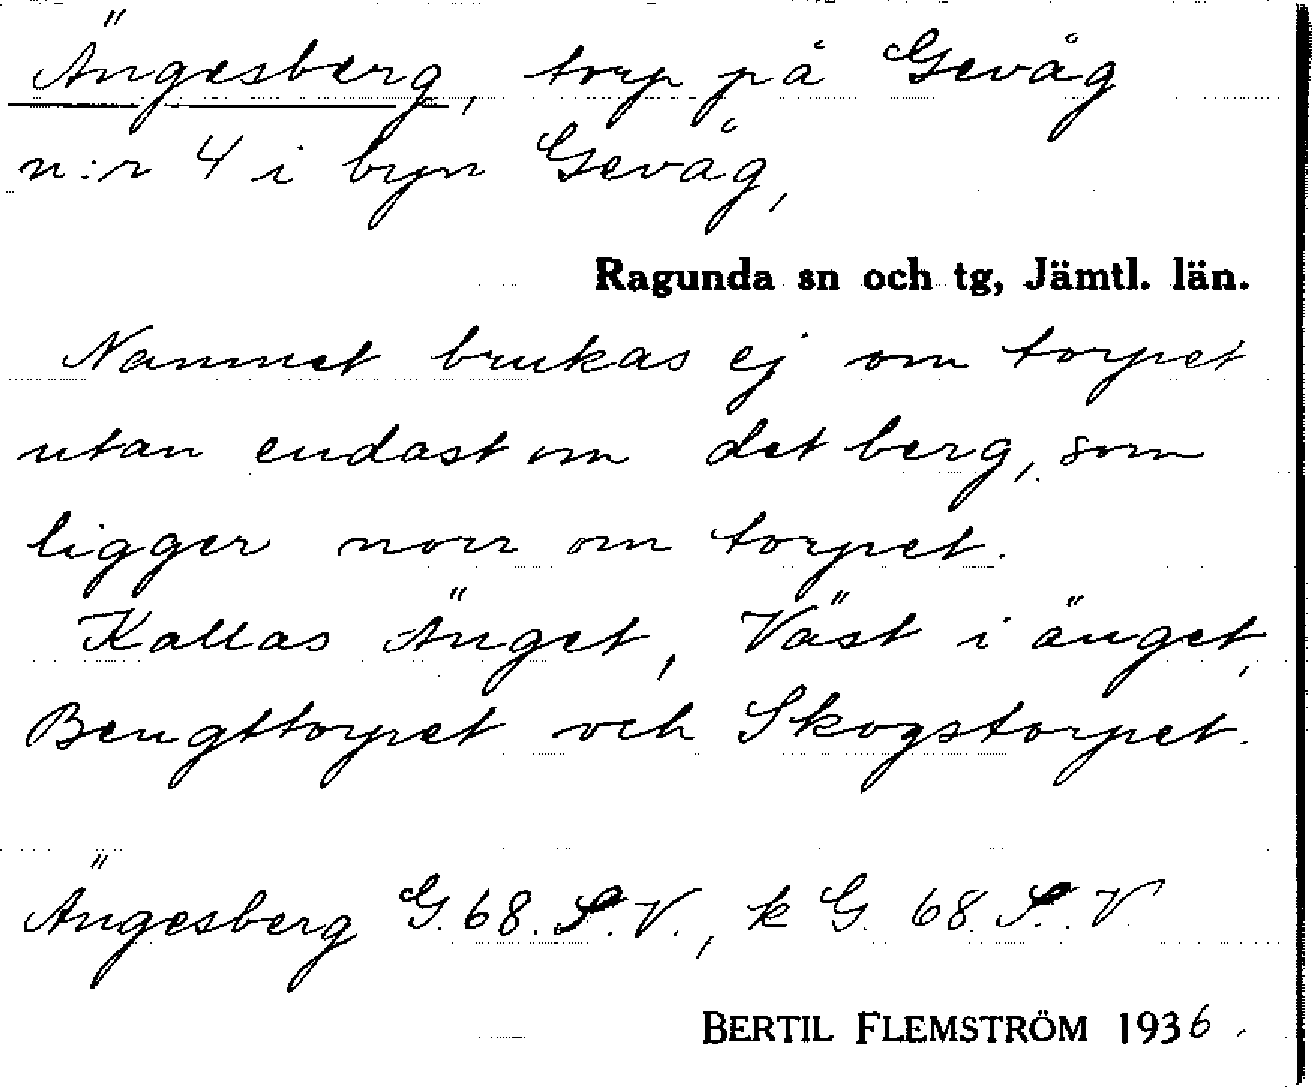 Ängesberg, torp på Gevåg
n:r 4 i byn Gevåg,
Ragunda sn och tg, Jämtl. län.
Namnet brukas ej om torpet
utan endast om det berg, som
ligger norr om torpet.
Kallas Änget, Väst i änget,
Bengttorpet och Skogstorpet.
Ängesberg G. 68. S. V., k G. 68. S. V.
BERTIL FLEMSTRÖM 1936.